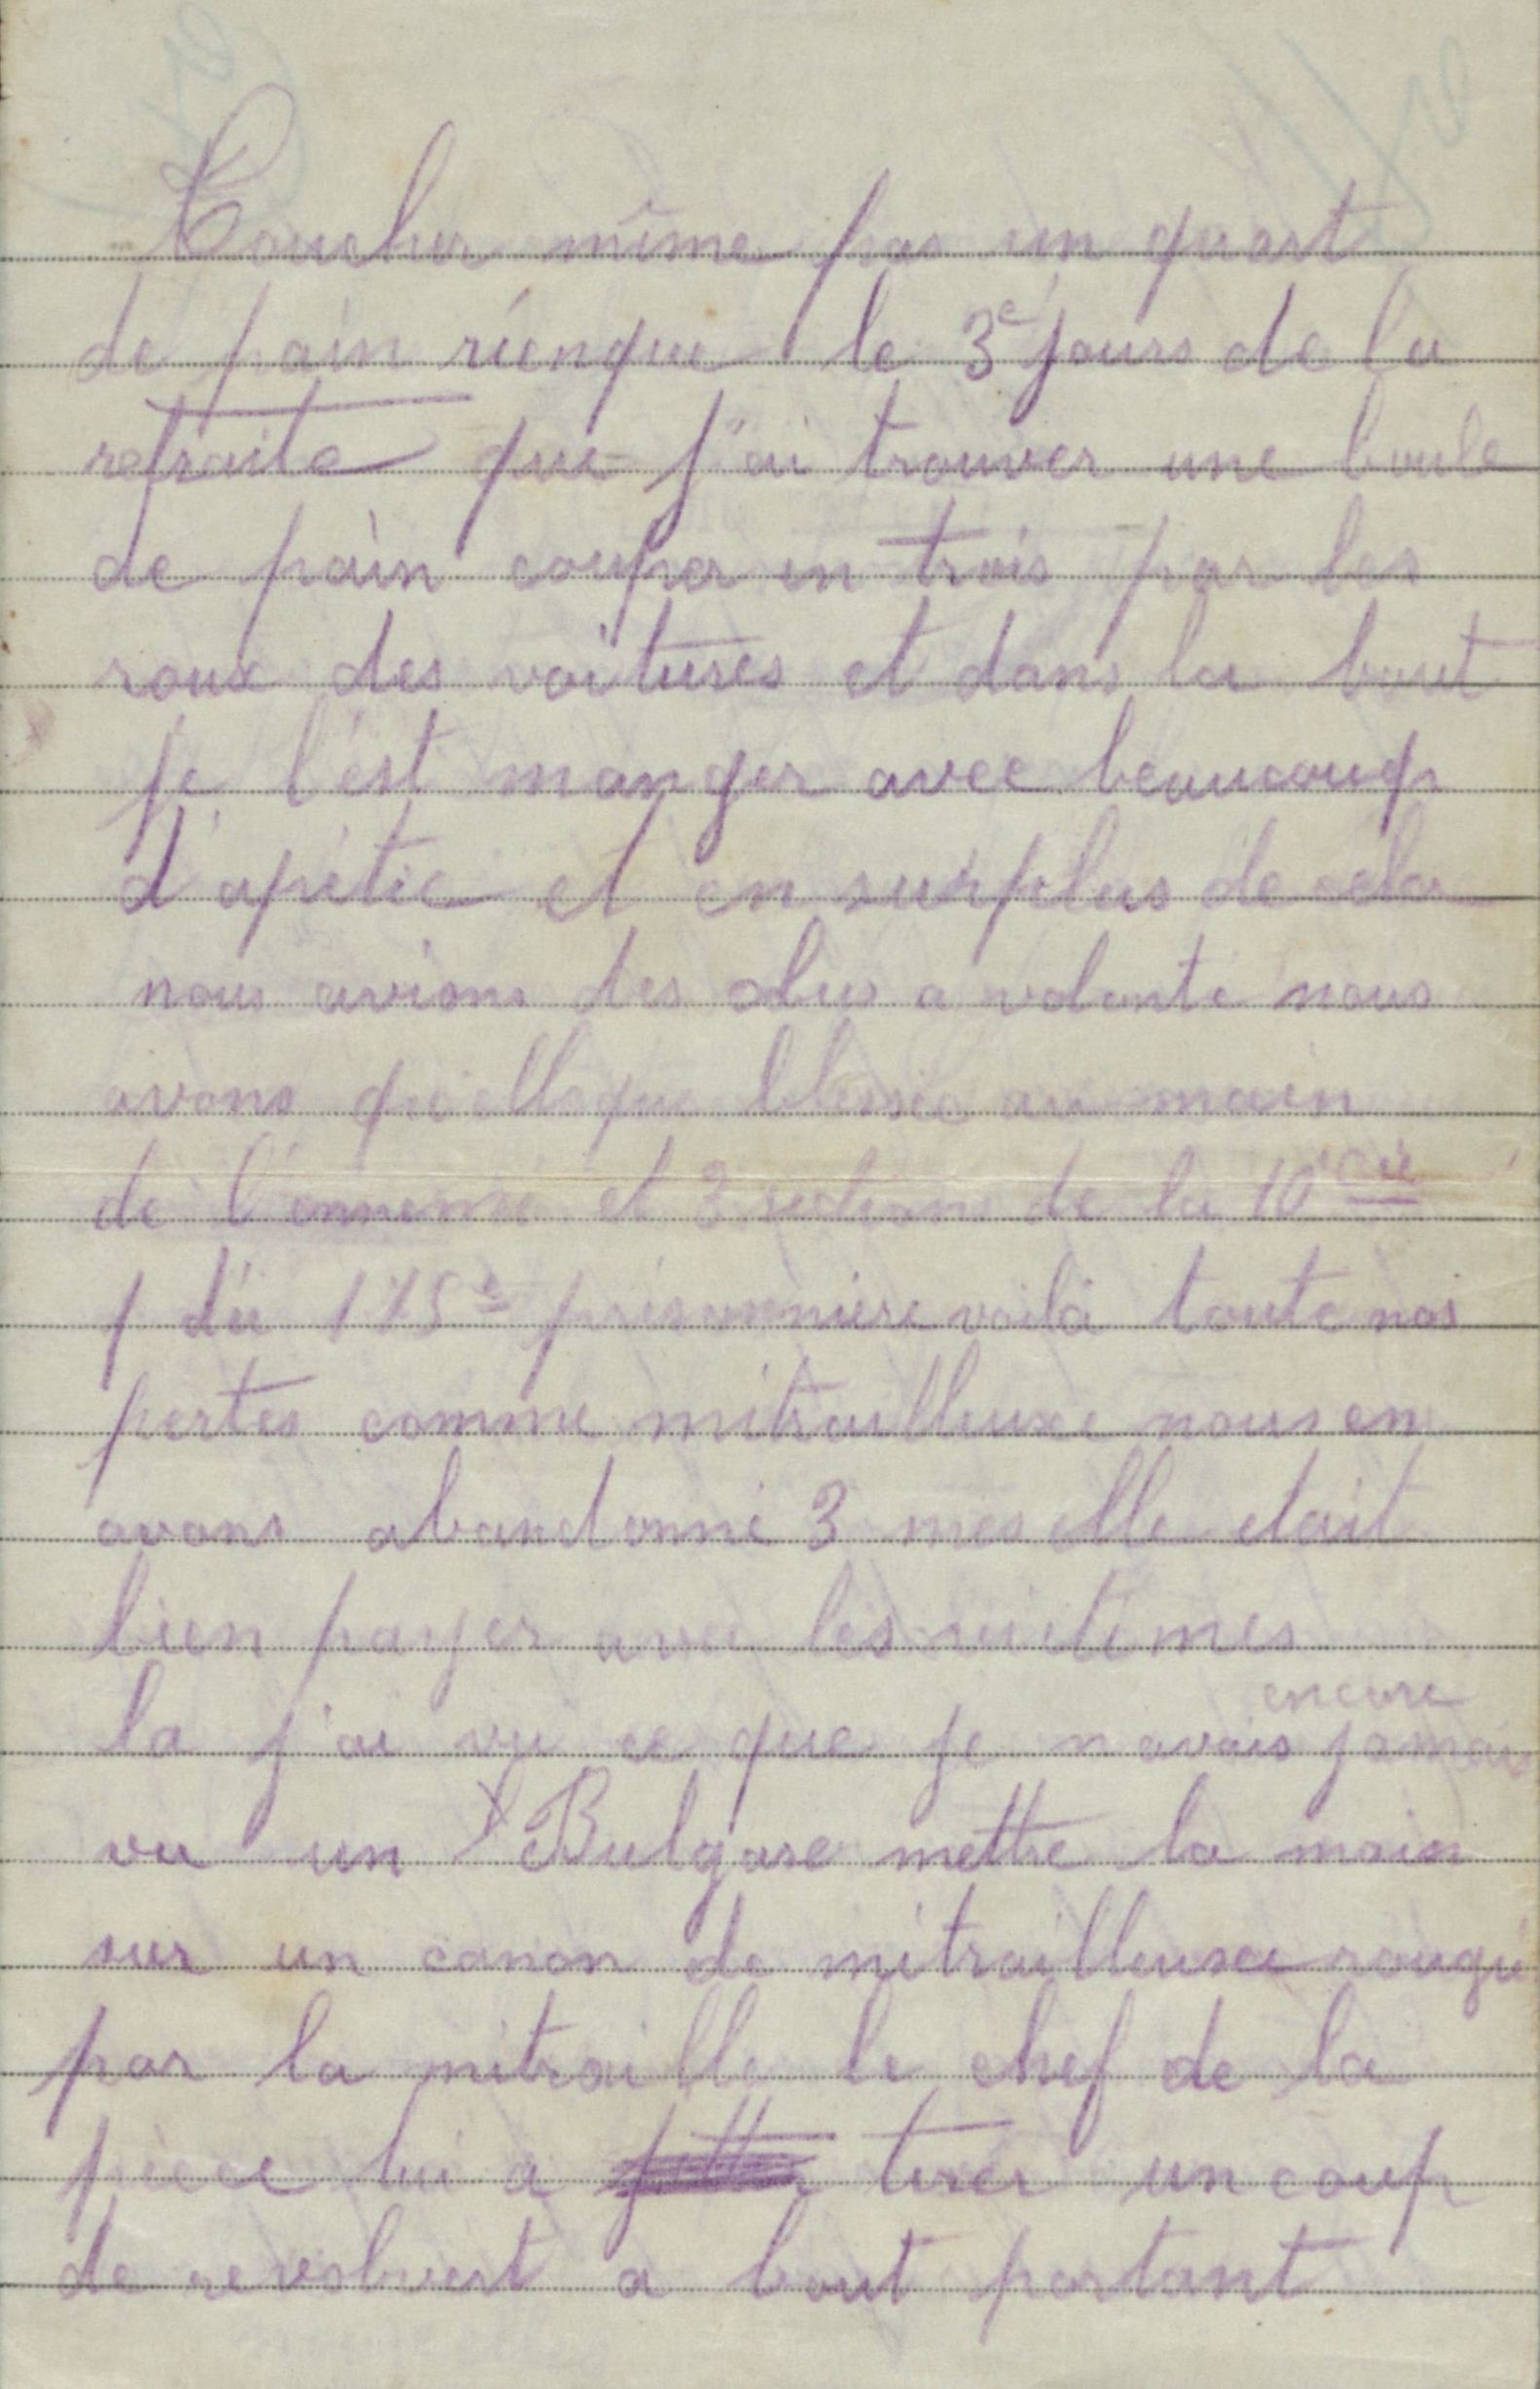 Toucher même pas un quart
de pain rienque le 3e jours de la
retraite que j'ai trouver une boule
de pain couper en trois par les
roux des voitures et dans la bout
je l'est manger avec beaucoup
d'apétie et en surplus de cela
nous avions des obus a volonte nous
avons quellque blessés au main
de l'ennemie et 3 sections de la 10 cie
du 175e prisonniere voilà toute nos
pertes comme mitrailleuxe nous en
avons abandonné 3 mes elle etait
bien payer avec les victimes
la j'ai vu ce que je n avais encore jamais
vu un Bulgare mettre la main
sur un canon de mitrailleuse rougi
par la mitraille le chef de la
pièce lui a tirer un coup
de revolvert a bout portant